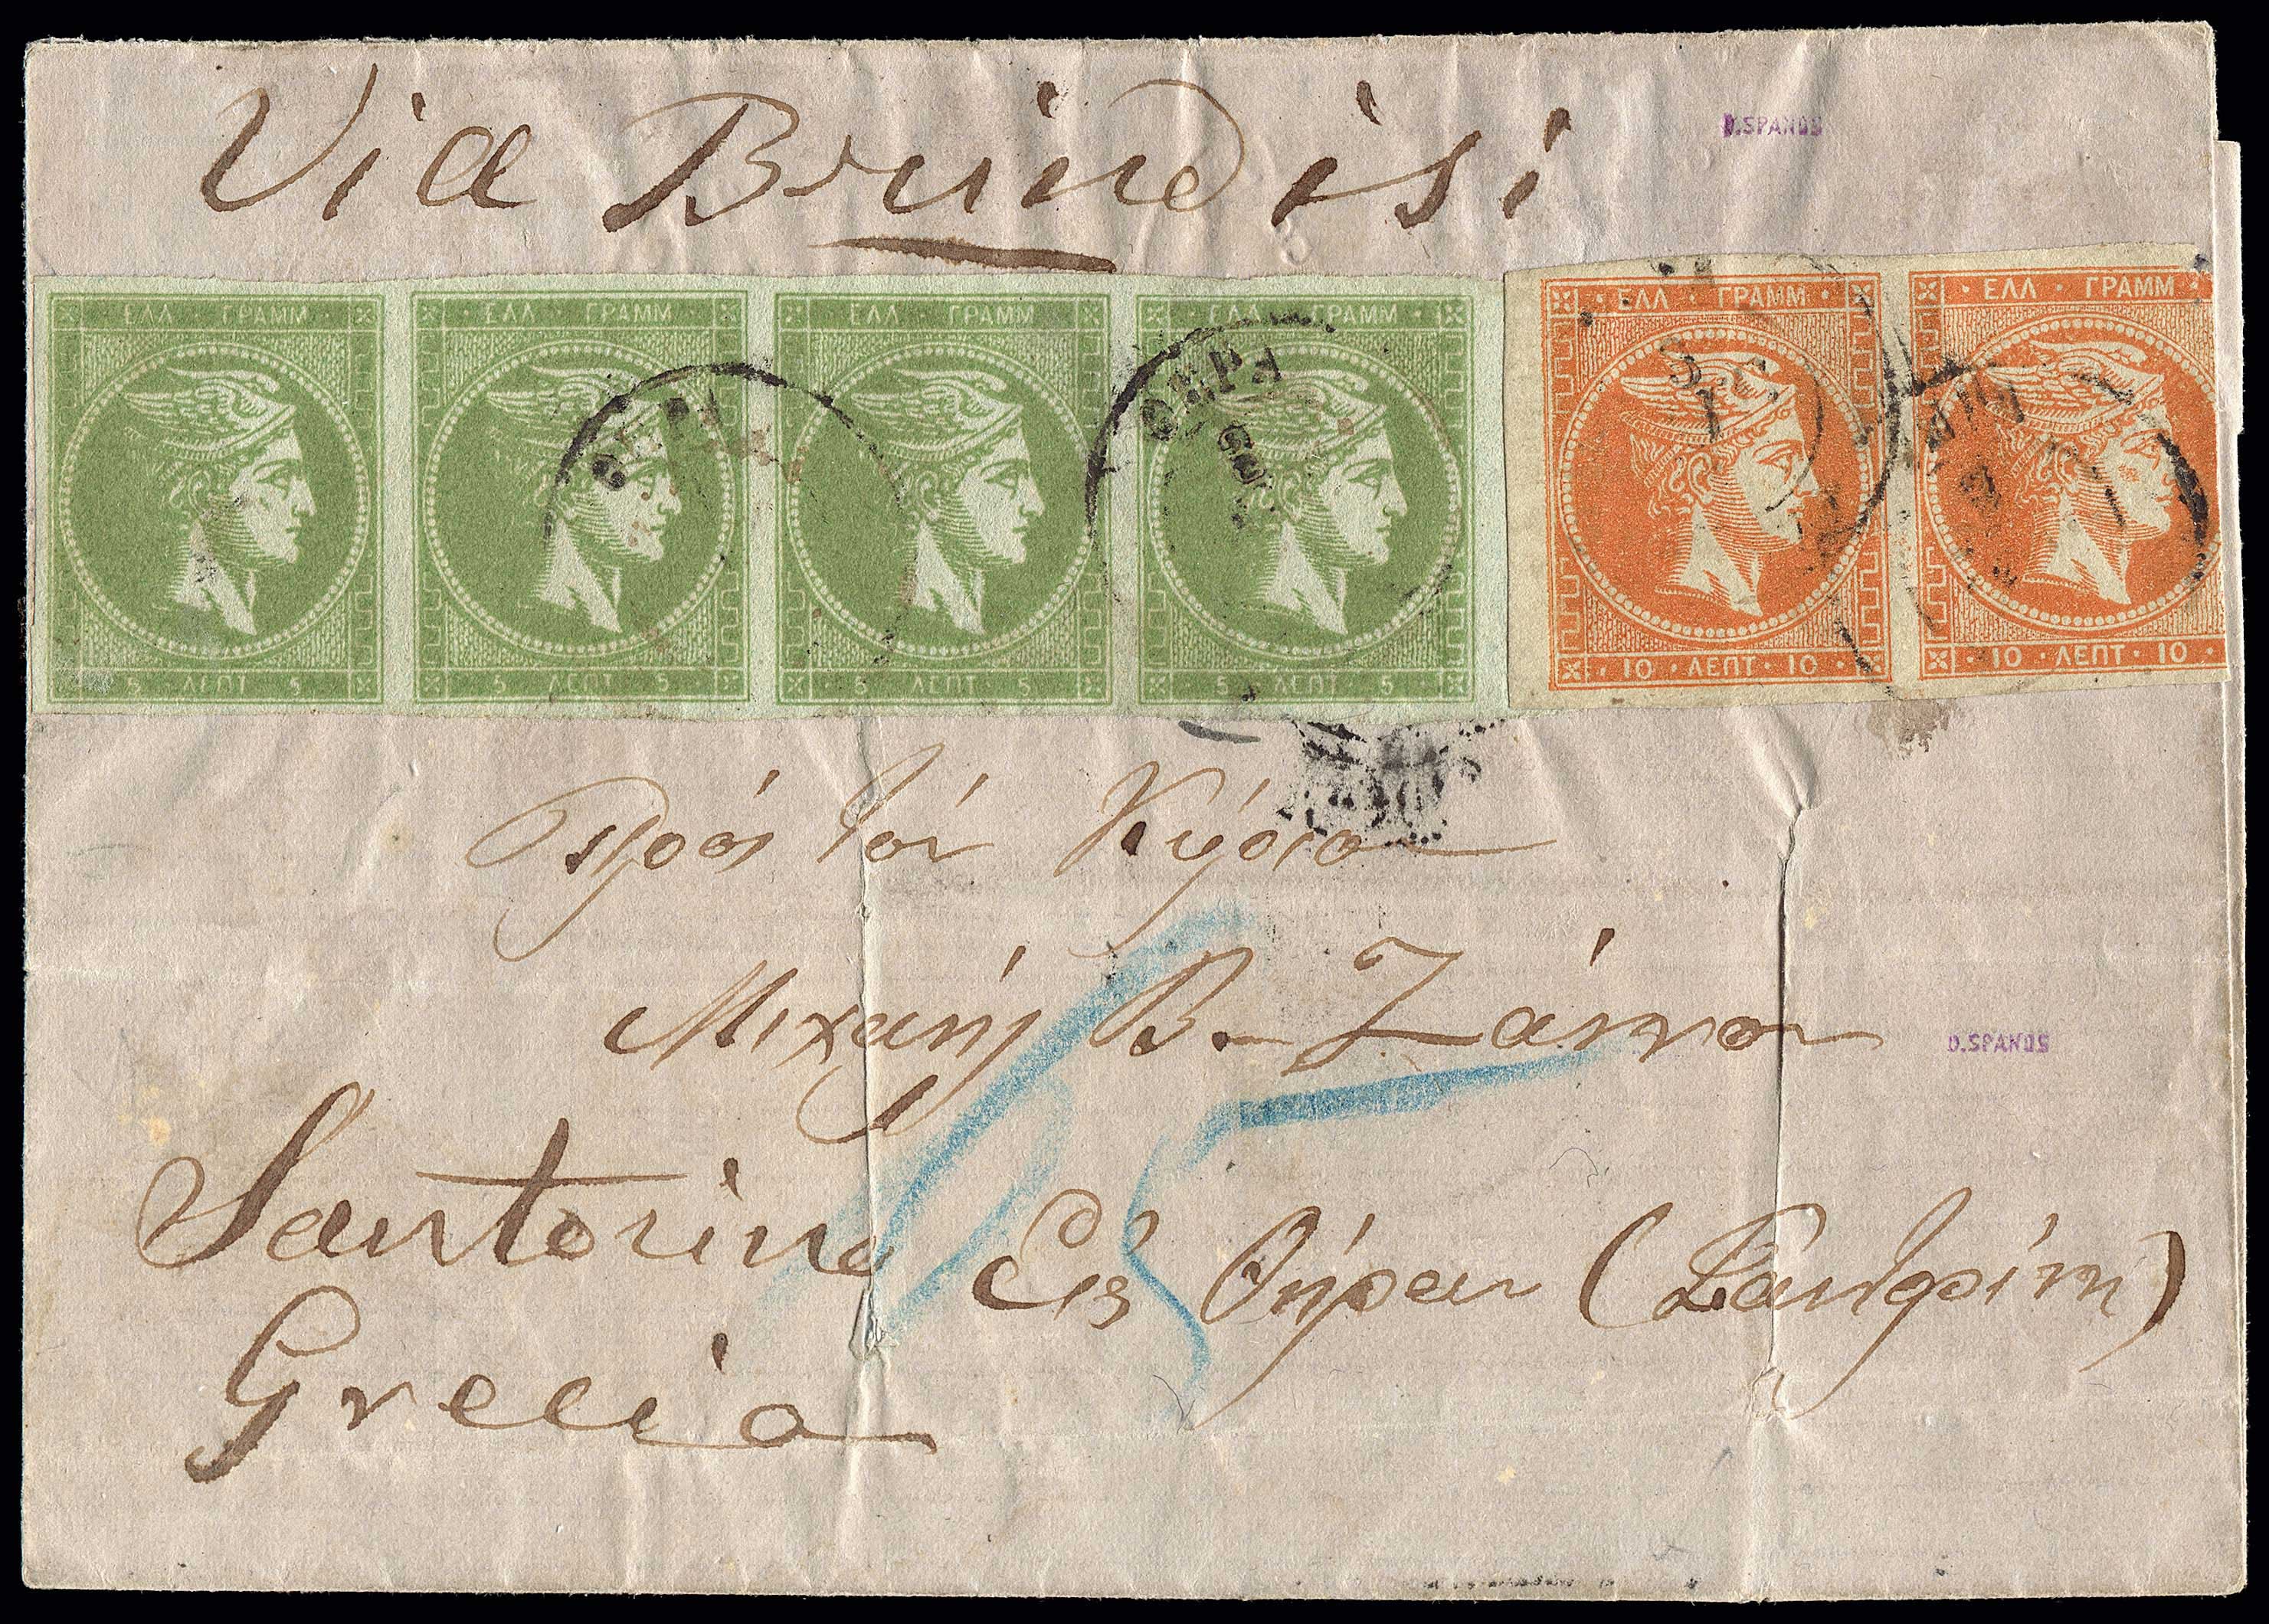 Via Brindisi
D.SPANOS
ΕΛΛ · ΓΡΑΜΜ ΕΛΛ · ΓΡΑΜΜ ΕΛΛ · ΓΡΑΜΜ ΕΛΛ · ΓΡΑΜΜ · ΕΛΛ · ΓΡΑΜΜ · · ΕΛΛ · ΓΡΑΜΜ ·
ΘΕΡΑ
5 ΛΕΠΤ 5 5 ΛΕΠΤ 5 5 ΛΕΠΤ 5 5 ΛΕΠΤ 5 · 10 · ΛΕΠΤ · 10 · · 10 · ΛΕΠΤ · 10 ·
Πρὸς τὸν Κύριον
Μιχαὴλ Β. Ζάννον
D.SPANOS
Santorino Εἰς Θήραν (Σαντορίνη)
Grecia